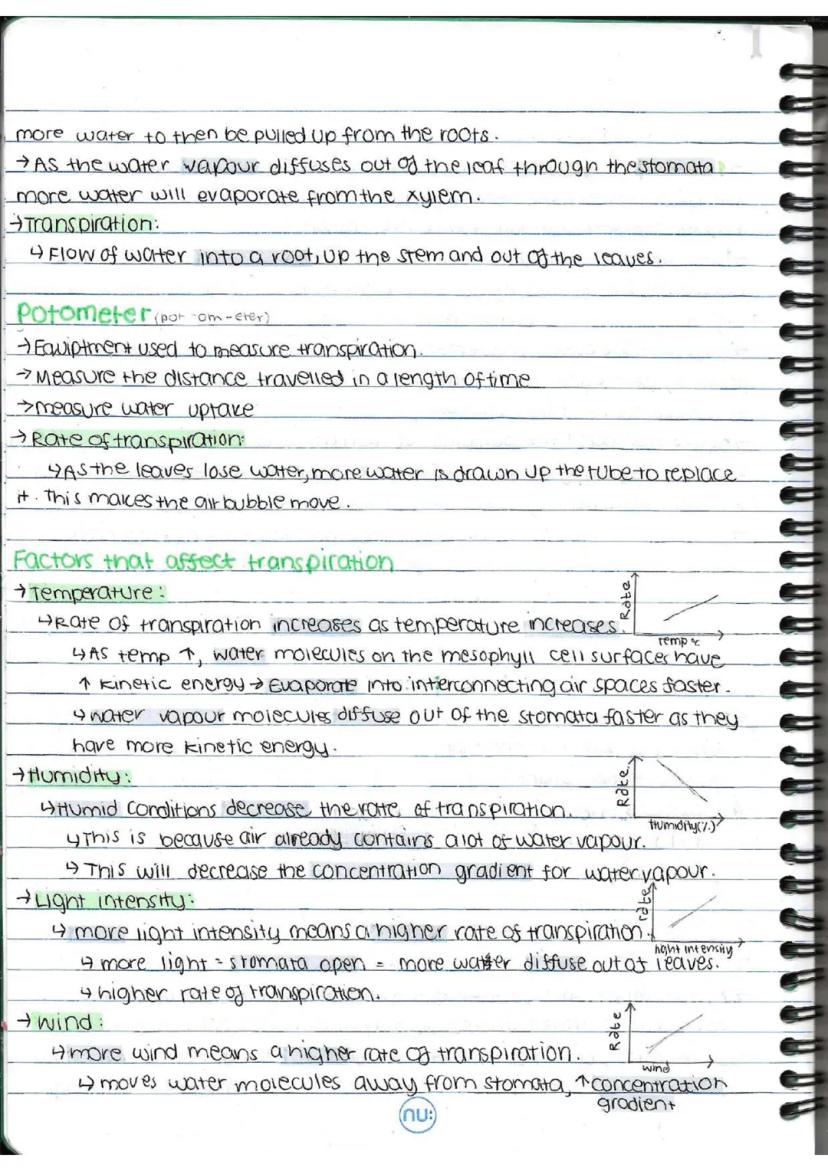 more water to then be pulled up from the roots.
→As the water vapour diffuses out of the leaf through the stomata
more water will evaporate from the xylem.
→Transpiration:
↳Flow of water into a root, up the stem and out of the leaves.
Potometer (pot-om-eter)
→Equiptment used to measure transpiration.
→Measure the distance travelled in a length of time
→measure water uptake
→Rate of transpiration:
↳As the leaves lose water, more water is drawn up the tube to replace
it. This makes the air bubble move.
Factors that affect transpiration
→Temperature:
Rate
↳Rate of transpiration increases as temperature increases.
Temp °c
↳As temp ↑, water molecules on the mesophyll cell surfaces have
↑ kinetic energy → Evaporate into interconnecting air spaces faster.
↳water vapour molecules diffuse out of the stomata faster as they
have more kinetic energy.
→Humidity:
Rate
↳Humid conditions decrease the rate of transpiration.
Humidity(%)
↳This is because air already contains alot of water vapour.
↳This will decrease the concentration gradient for water vapour.
→Light intensity:
rate
↳more light intensity means a higher rate of transpiration.
light intensity
↳more light = stomata open = more water diffuse out of leaves.
↳higher rate of transpiration.
→Wind:
Rate
↳more wind means a higher rate of transpiration.
wind
↳moves water molecules away from stomata, ↑concentration
gradient
nu: